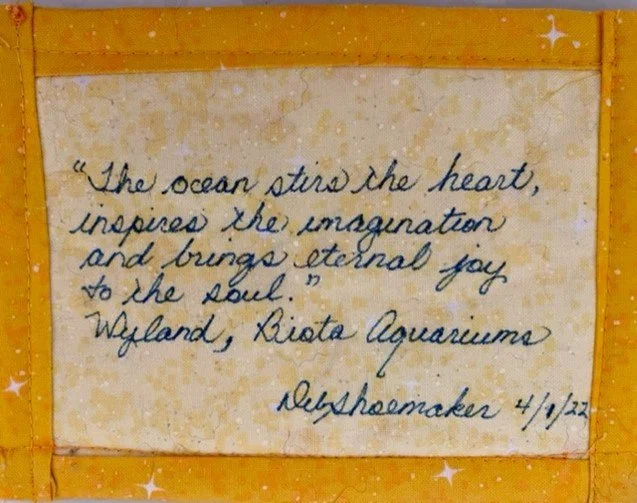 "The ocean stirs the heart,
inspires the imagination
and brings eternal joy
to the soul."
Wyland, Biota Aquariums
Deb Shoemaker 4/1/22